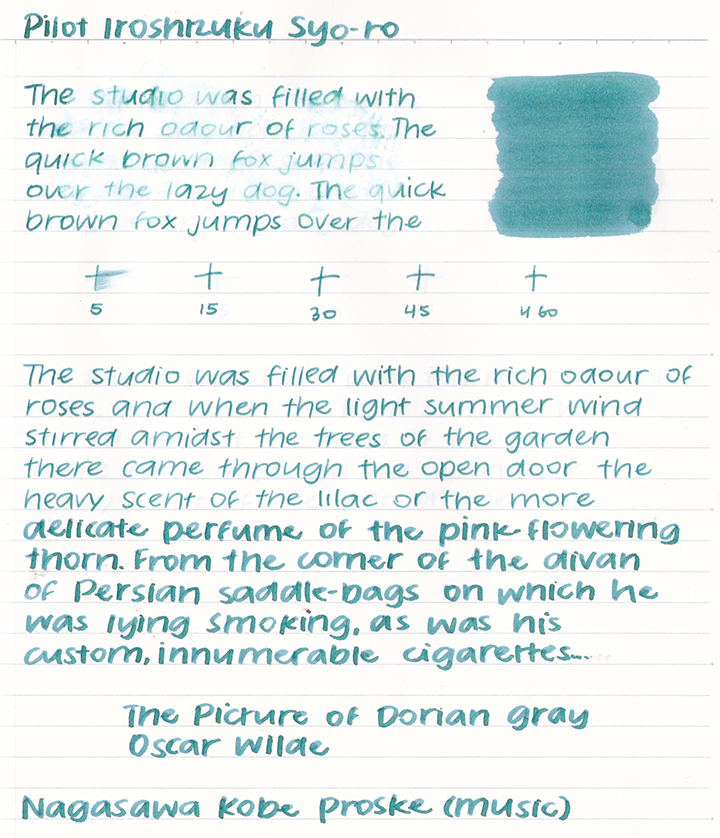 Pilot Iroshizuku Syo-ro
The studio was filled with
the rich odour of roses. The
quick brown fox jumps
over the lazy dog. The quick
brown fox jumps over the
5 15 30 45 60
The studio was filled with the rich odour of
roses and when the light summer wind
stirred amidst the trees of the garden
there came through the open door the
heavy scent of the lilac or the more
delicate perfume of the pink-flowering
thorn. From the corner of the divan
of Persian saddle-bags on which he
was lying smoking, as was his
custom, innumerable cigarettes...
The Picture of Dorian Gray
Oscar Wilde
Nagasawa Kobe Proske (music)